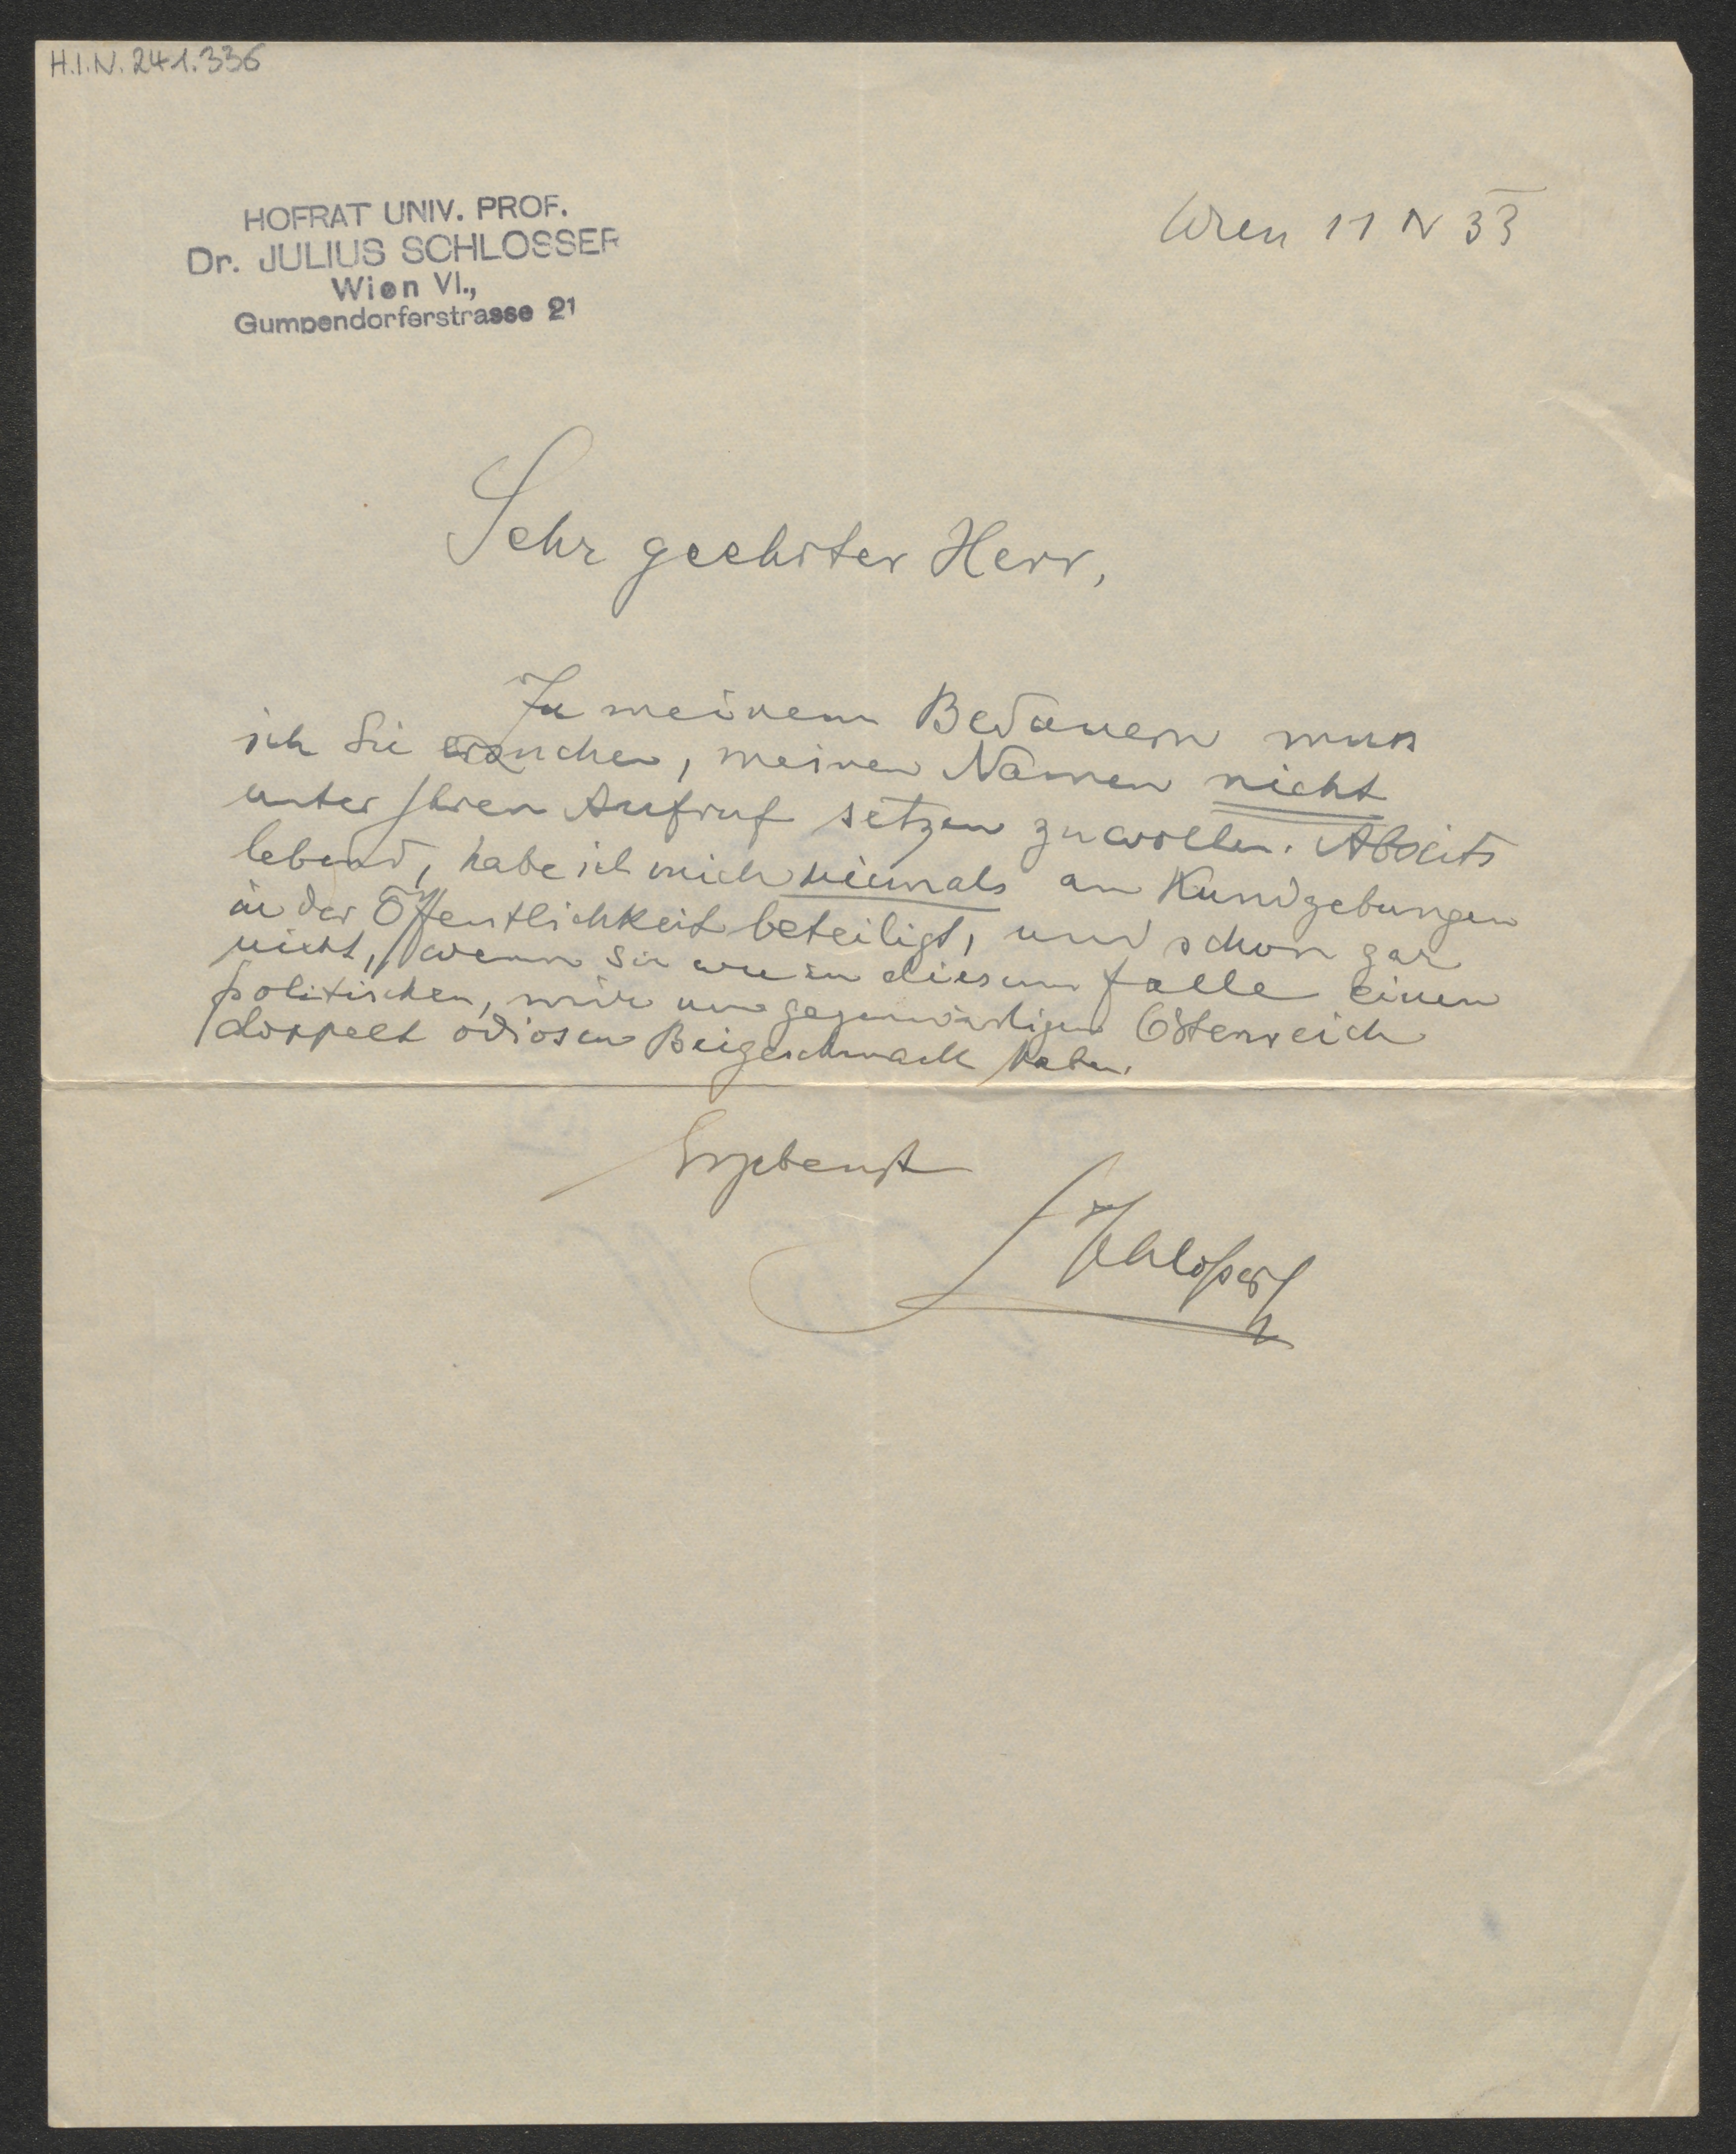 H.I.N. 241.336
HOFRAT UNIV. PROF.
Dr. JULIUS SCHLOSSER
Wien VI.,
Gumpendorferstrasse 21
Wien 11 N 33
Sehr geehrter Herr,
Zu meinem Bedauern muss
ich Sie ersuchen, meinen Namen nicht
unter Ihren Aufruf setzen zu wollen. Abseits
lebend, habe ich mich niemals an Kundgebungen
in der Öffentlichkeit beteiligt, und schon gar
nicht, wenn sie wie in diesem Falle einen
politischen, mir im gegenwärtigen Österreich
doppelt odiosen Beigeschmack haben.
Ergebenst
Schlosser